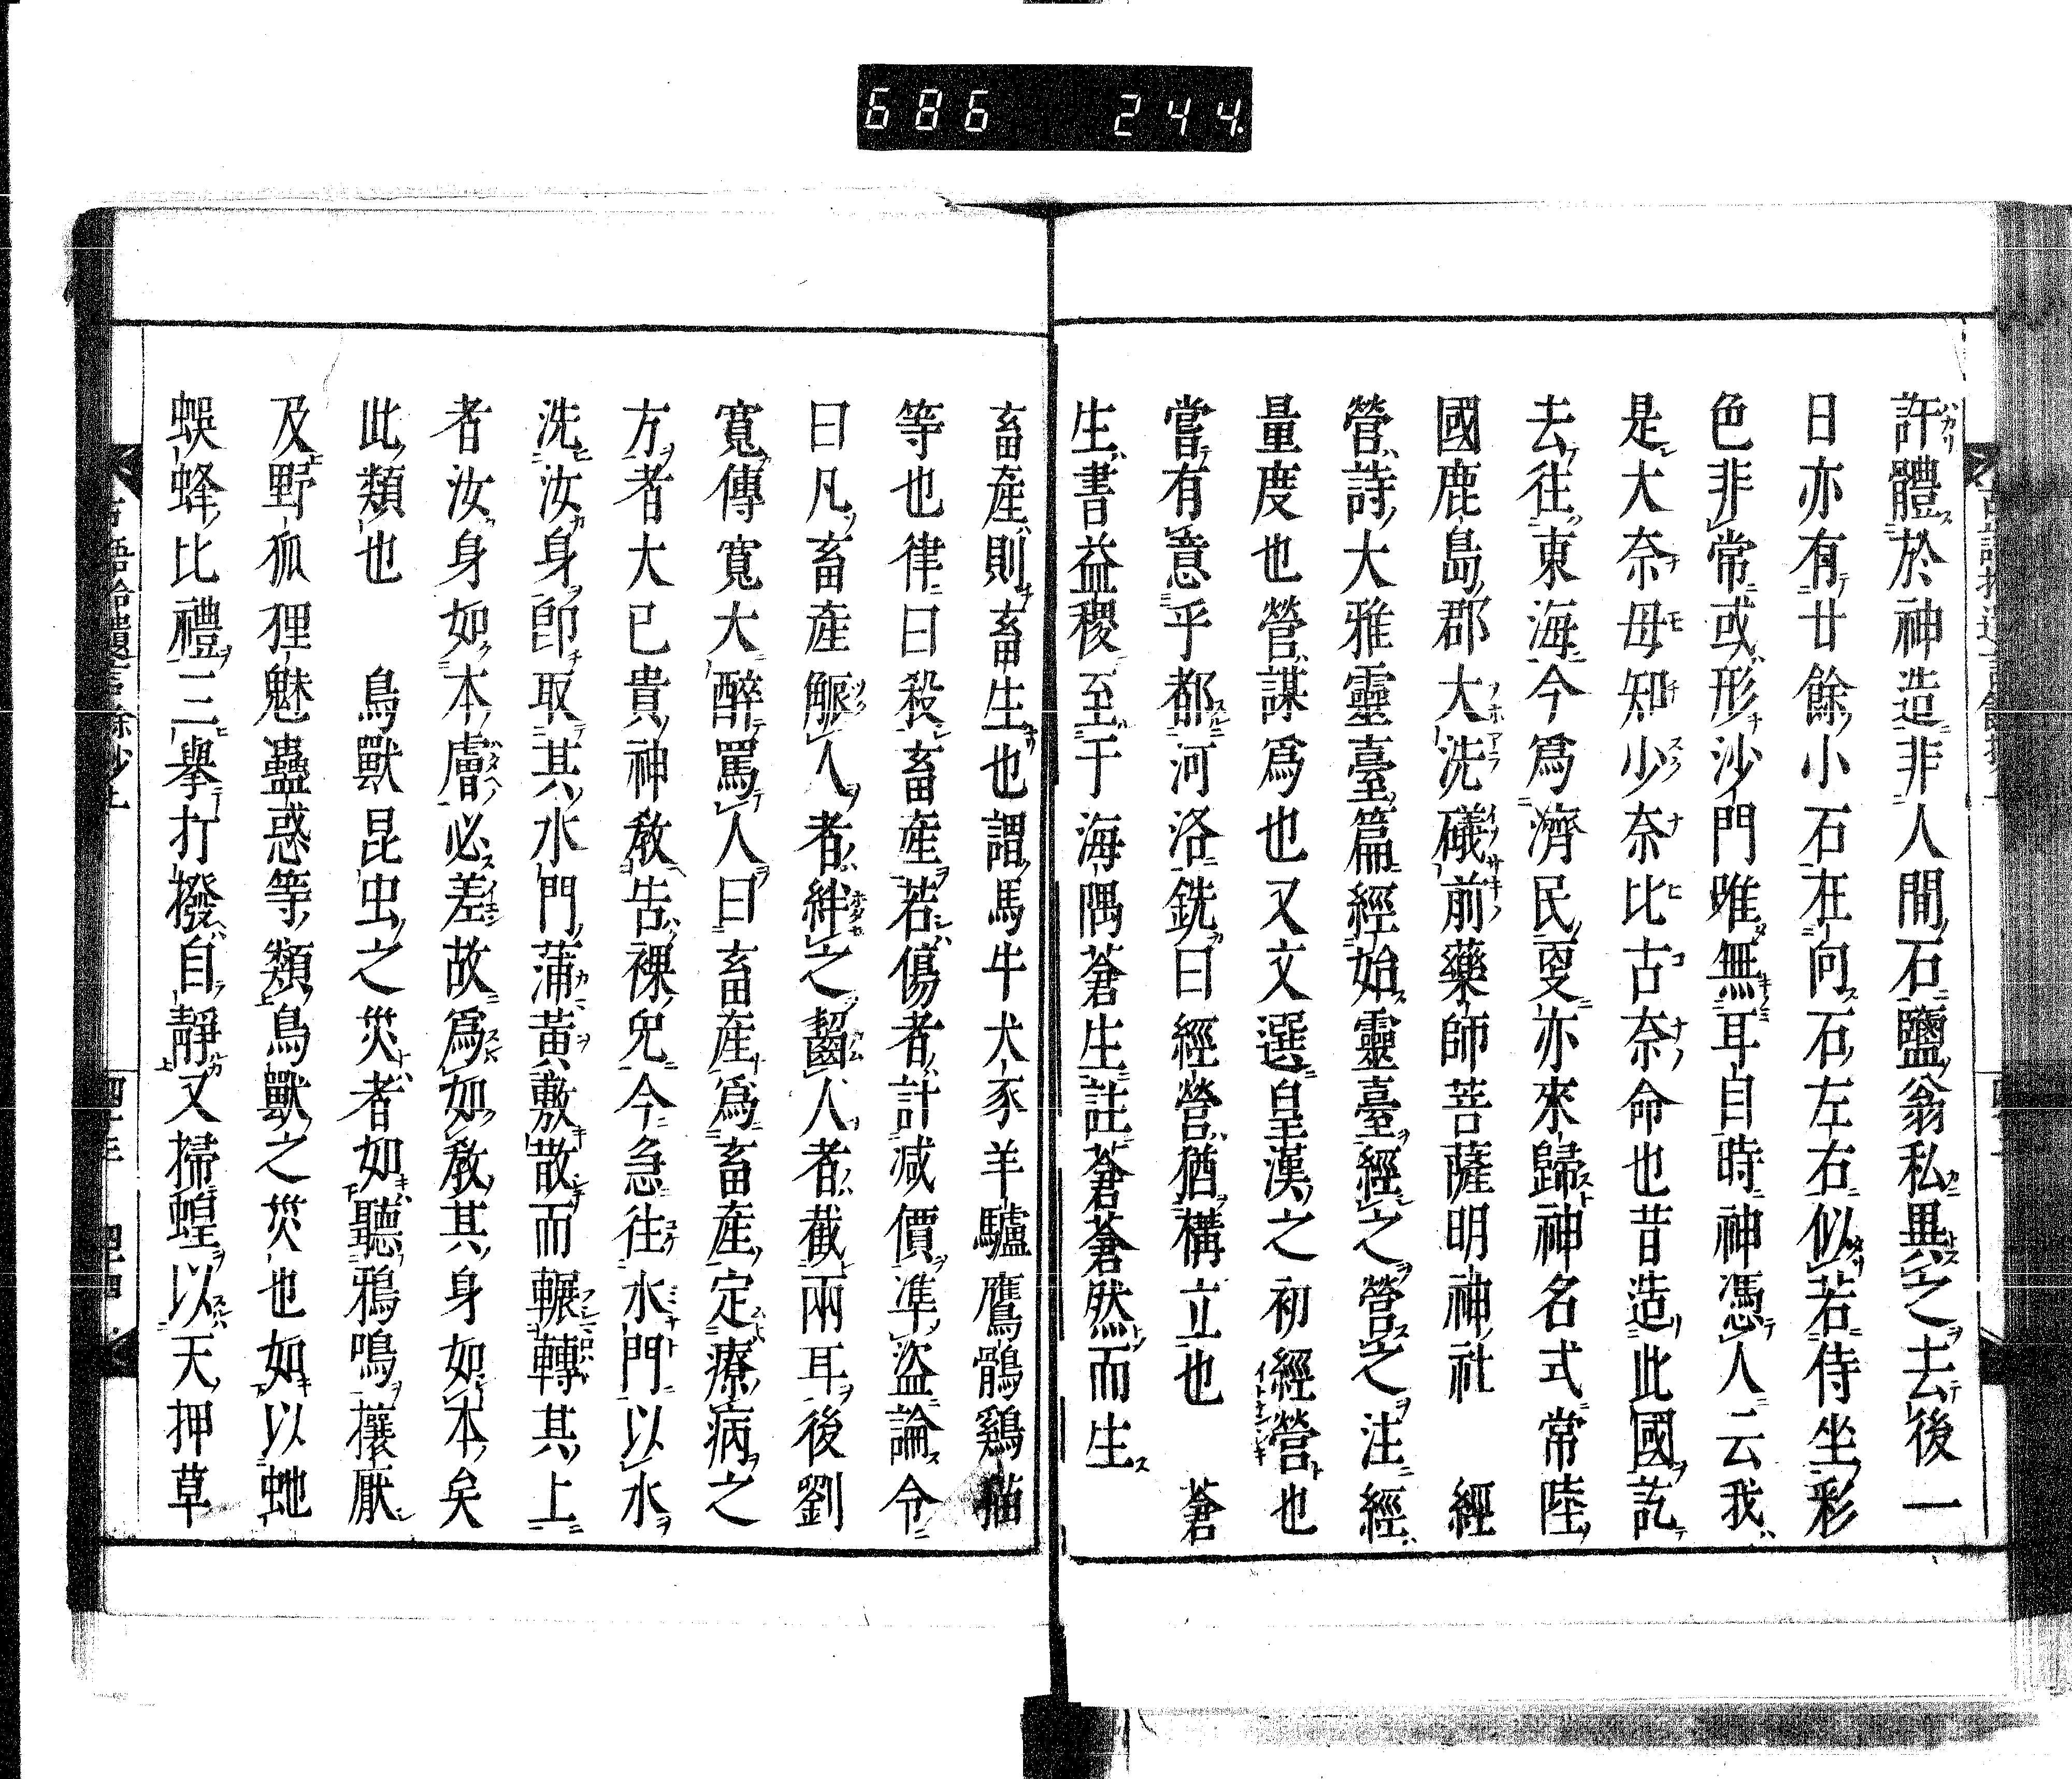 686 244
許體於神造非人間石鹽翁私異之去後一
日亦有廿餘小石在向石左右似若侍坐彩
色非常或形沙門唯無耳自時神憑人云我
是大奈毋知少奈比古奈命也昔造此國訖
去往東海今爲濟民更亦來歸神名式常陸
國鹿島郡大洗礒前藥師菩薩明神社　經
營詩大雅靈臺篇經始靈臺經之營之注經
量度也營謀爲也又文選皇漢之初經營也
嘗有意乎都河洛銑曰經營猶構立也　蒼
生書益稷至于海隅蒼生註蒼蒼然而生
畜產則畜生也謂馬牛犬豕羊驢鷹鶻鷄猫
等也律曰殺畜產若傷者計减價凖盜論令
曰凡畜產觝人者絆之齧人者截兩耳後劉
寬傳寬大醉罵人曰畜產爲畜產定療病之
方者大已貴神教告裸兒今急往水門以水
洗汝身即取其水門蒲黃敷散而輾轉其上
者汝身如本膚必差故爲如教其身如本矣
此類也　鳥獸昆虫之災者如聽鴉鳴攘厭
及野狐狸魅蠱惑等類鳥獸之災也如以虵
蜈蜂比禮三擧打撥自靜又掃蝗以天押草